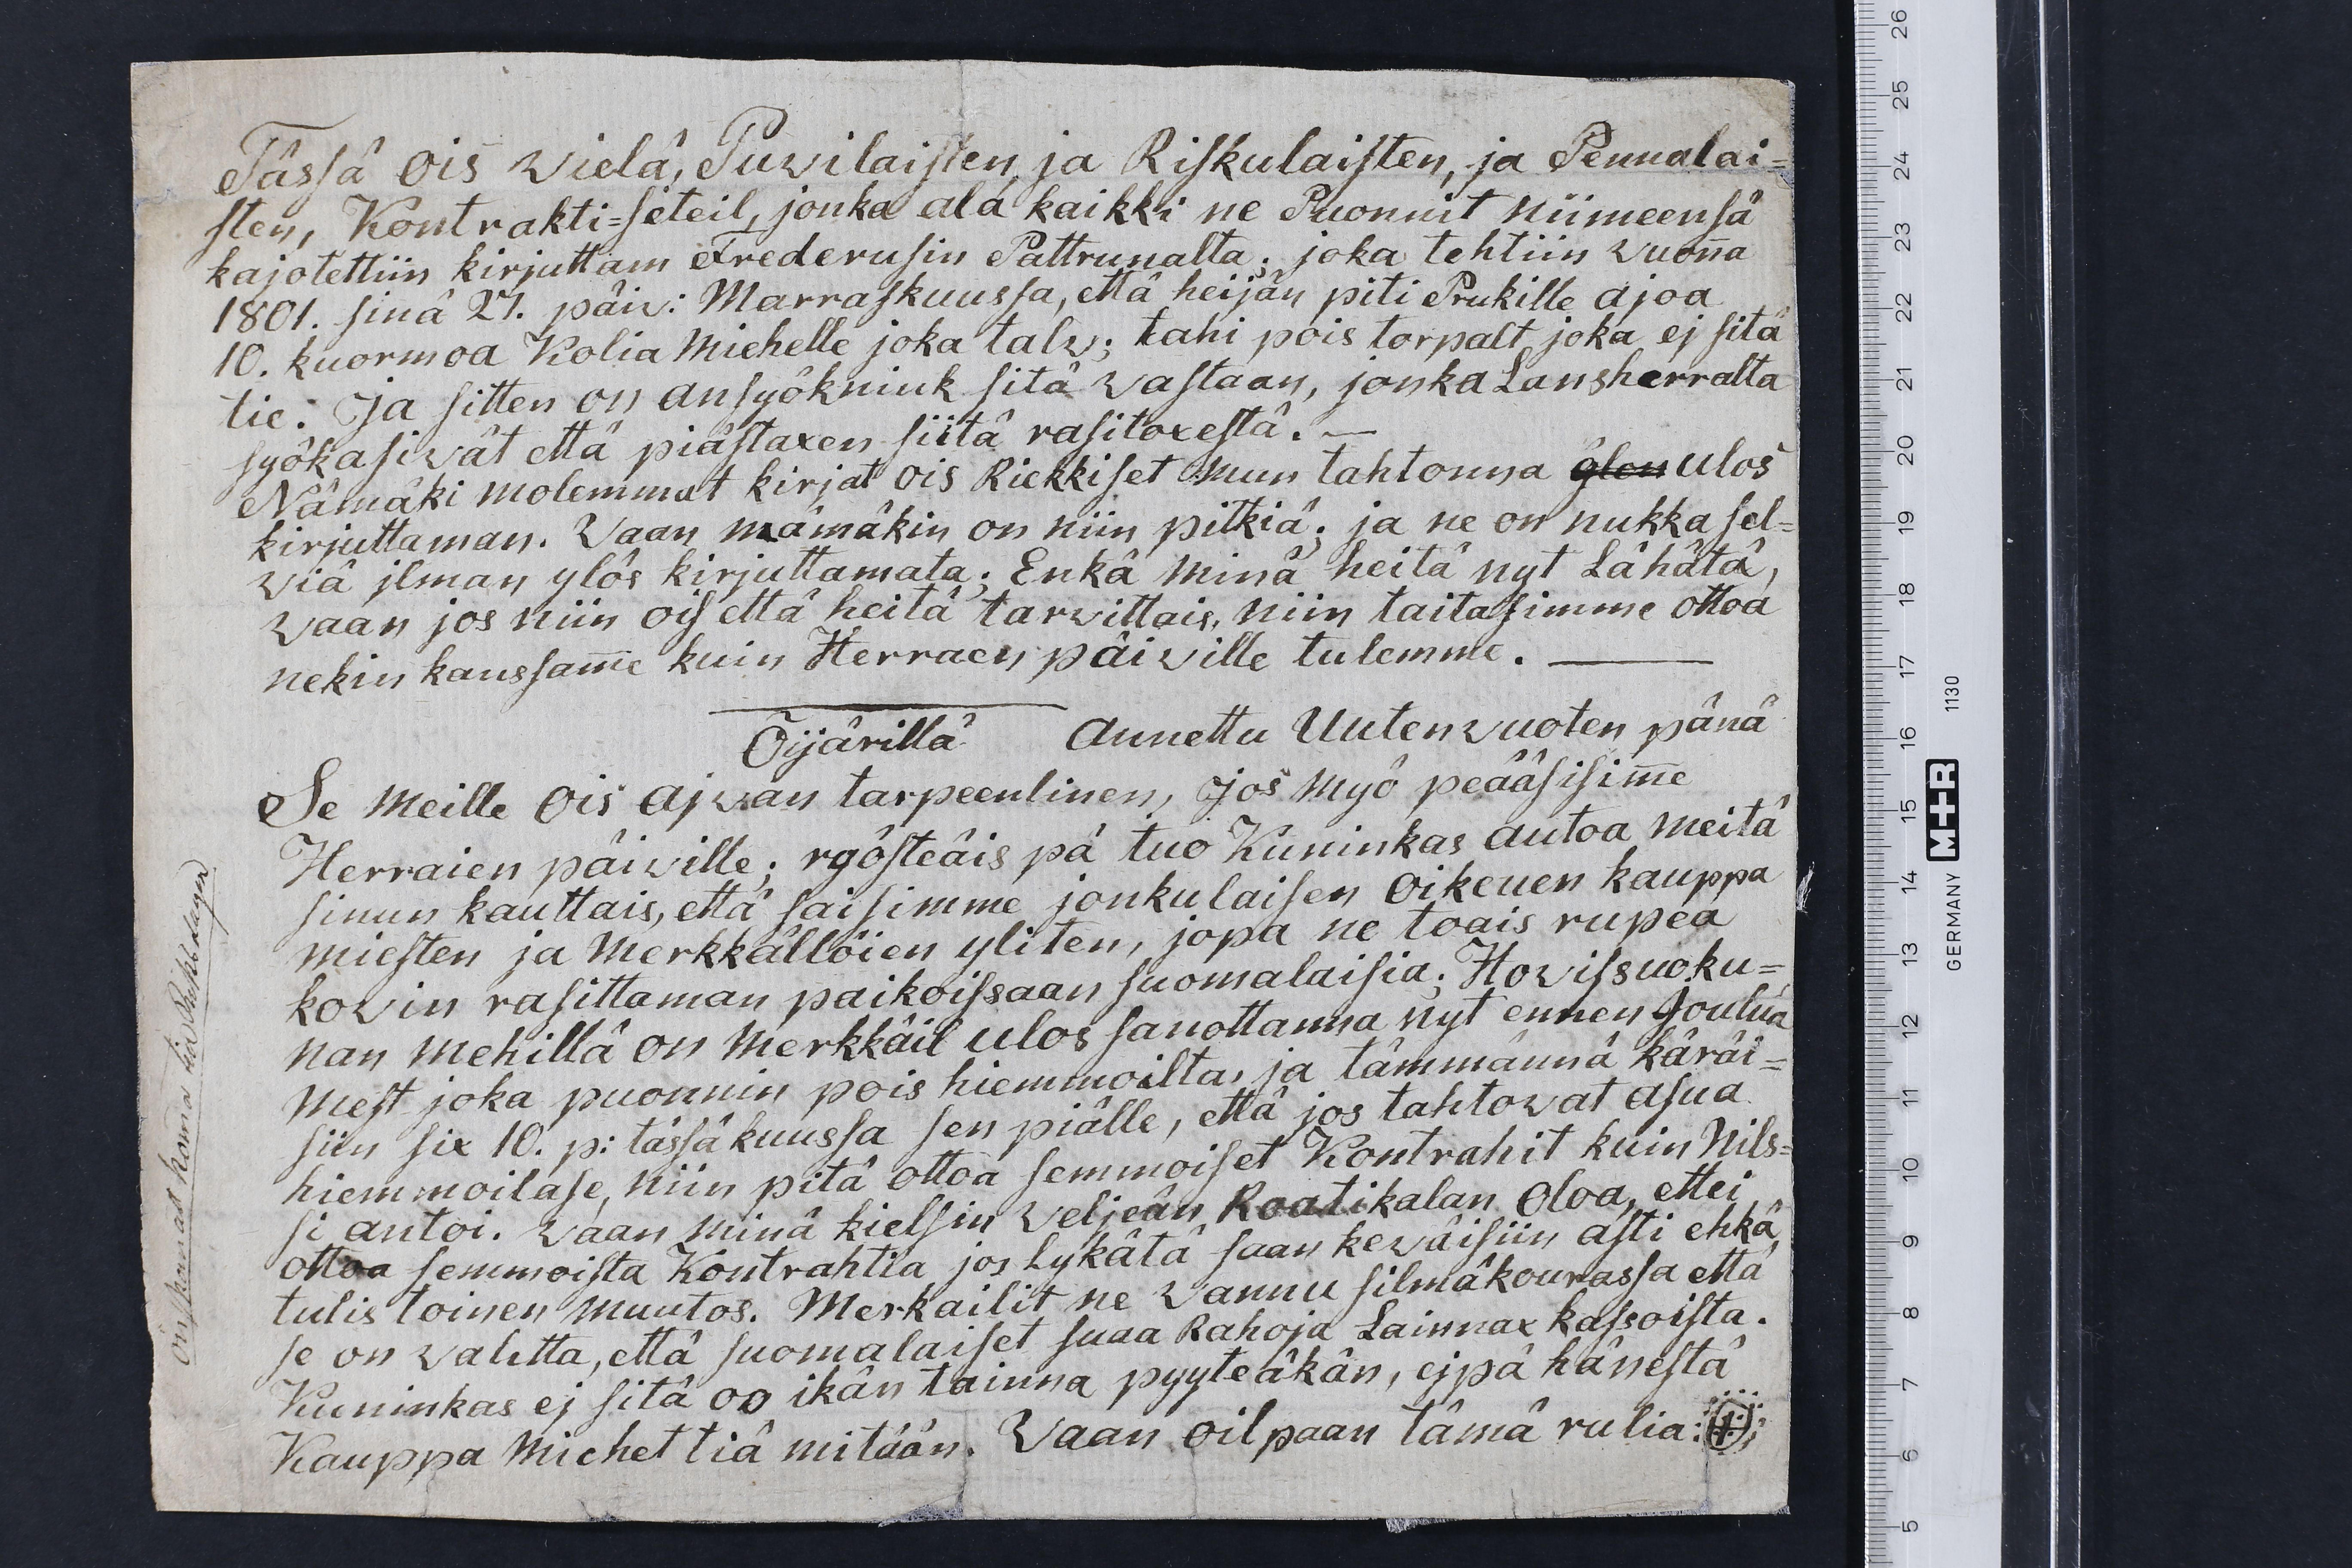 Tässä ois vielä, Puvilaisten, ja Riskulaisten, ja Pennalai=
sten, Kontrakti=seteil, jonka ala kaikki ne Puonnit niimeensä
kajotettiin kirjuttam Frederusin Pattrunalta; joka tehtiin vuoña
1801. sinä 27. päiv: Marraskuussa, että heijän piti Prukille ajoa
10. kuormoa Kolia Miehelle joka talv; tahi pois torpalt, joka ej sitä
tie. Ja sitten on ansyökniuk sitä vastaan, jonka Lansherralta
syökasivät että piästaxen siitä rasitoxestä. —
Nämäki molemmat kirjat ois Riekkiset mun tahtonna ulos
kirjuttaman. Vaan mämäkin on niin pitkiä; ja ne on nukka sel=
viä jlman ylös kirjuttamata; Enkä minä heitä nyt Lähätä,
vaan jos niin ois että heitä tarvittais, niin taitasimme ottoa
nekin kanssam̄e kuin Herraen päiville tulemme. —
Öijärillä Annettu Uuten vuoten pänä
Se meille ois ajvan tarpeenlinen, jos myö peääsisim̄e
Herraien päiville; ryösteäis pä tuo Kuninkas autoa meitä
sinun kauttais, että saisimme jonkulaisen Oikeuen kauppa
miesten ja Merkkällöien yliten, jopa ne toais rupea
kovin rasittaman paikoissaan suomalaisia; Hovissuoku=
nan mehillä on Merkkäil ulos sanottanna nyt ennen Joulua
mest joka puonnin pois hiemmoilta, ja tämmännä käräi=
siin six 10. p: tässä kuussa sen piälle, että jos tahtovat asua
hiemmoilase, niin pitä ottoa semmoiset Kontrahit kuin Nils=
si antoi. Vaan minä kielsin veljeän Raatikalan Oloa, ettei
ottoa semmoista Kontrahtia, jos Lykätä saan keväisiin asti ehkä
tulis toinen muutos. Merkailit ne vannu silmäkourassa että
se on valetta, että suomalaiset suaa Rahoja Lainnax kassoista.
Kuninkas ej sitä oo ikän tainna pyyteäkän, ejpä hänestä
Kauppa Miehet tiä mitään. Vaan oilpaan tämä rulia:
önskemas koma til Rikhsdagen